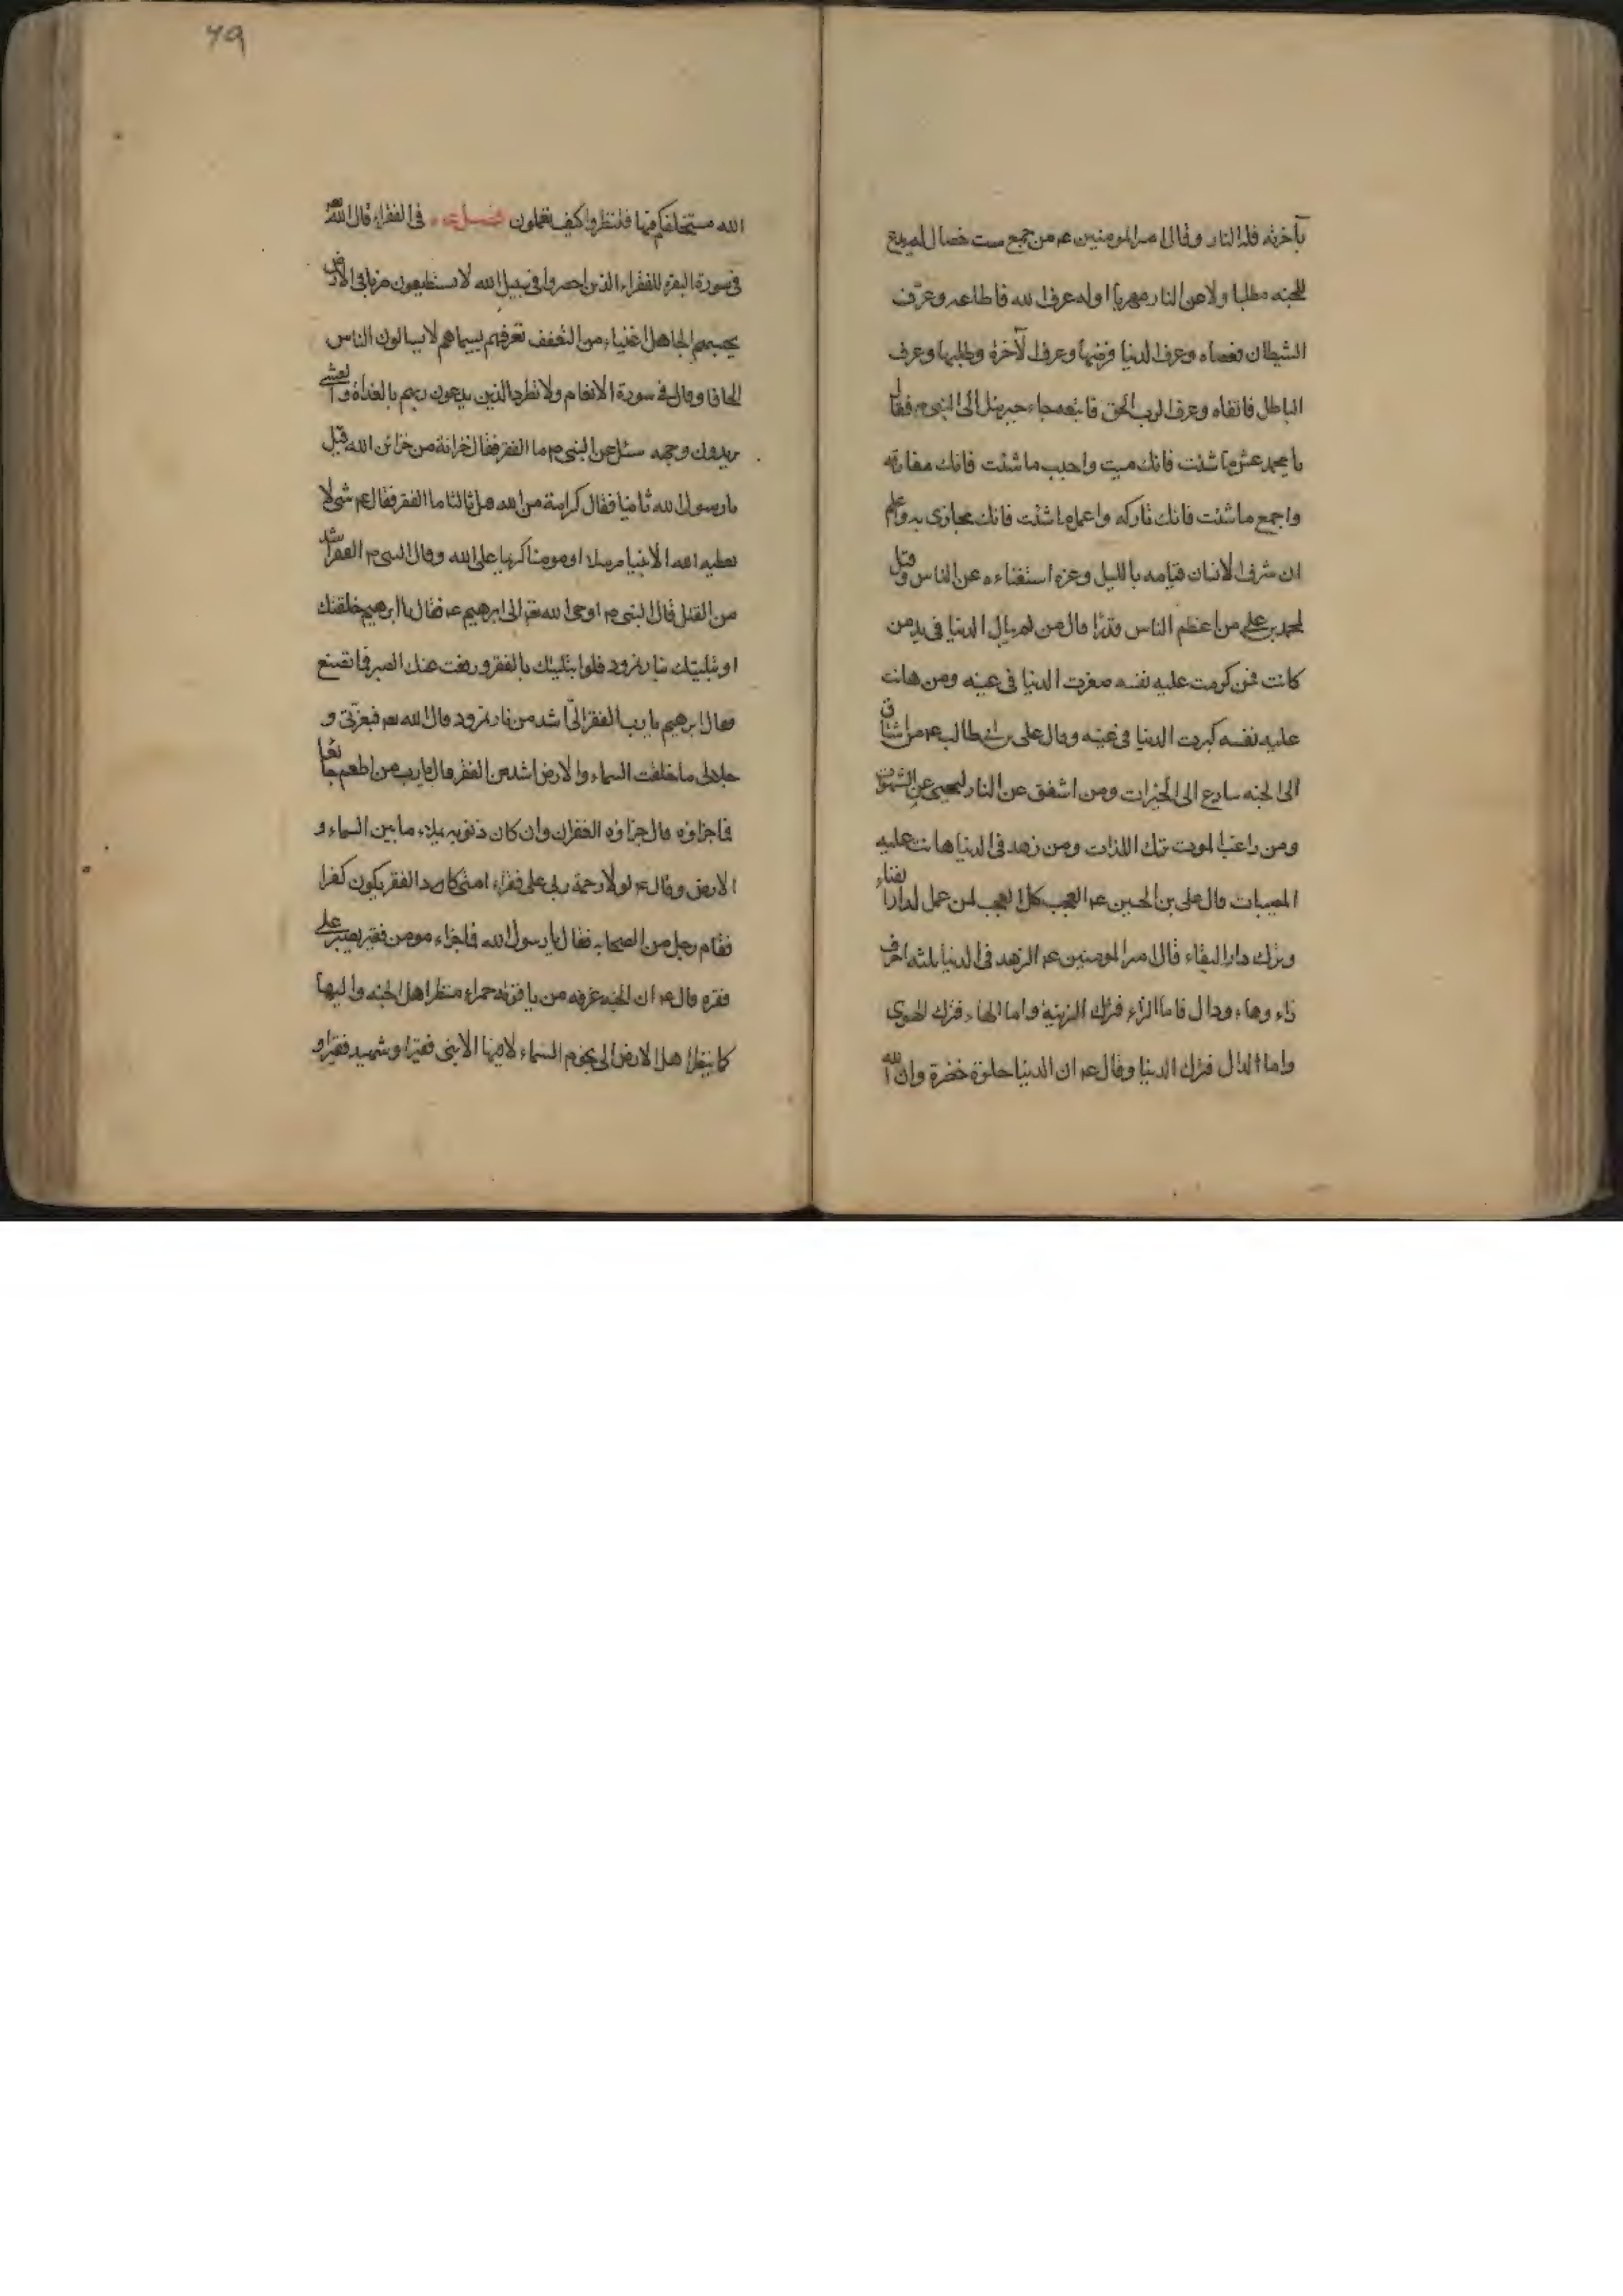 بآخرته فله النار وقال امير المومنين عم من جمع ست خصال لم يدع
للجنه مطلبا ولا عن النار مهربا اوله عرف الله فاطاعه وعرف
الشيطان فعصاه وعرف الدنيا فرفضها وعرف الآخرة وطلبها وعرف
الباطل فاتقاه وعرف الرب الحق فاتبعه جاء جبرئيل الى النبي م فقال
يا محمد عش ما شئت فانك ميت واحبب ما شئت فانك مفارقه
واجمع ما شئت فانك تاركه واعمل ما شئت فانك مجازى به واعلم
ان شرف الانسان قيامه بالليل وعزه استغناءه عن الناس وقيل
لمحمد بن علي من اعظم الناس قدرا قال من لم يبال الدنيا في يد من
كانت فمن كرمت عليه نفسه صغرت الدنيا في عينه ومن هانت
عليه نفسه كبرت الدنيا في عينه وقال على بن ابي طالب عم من اشتاق
الى الجنه سارع الى الخيرات ومن اشفق عن النار عن الشهوات
ومن راغب الموت ترك اللذات ومن زهد في الدنيا هانت عليه
المصيبات قال علي بن الحسين عم العجب كل العجب لمن عمل لدار الفناء
وترك دار البقاء قال امير المومنين عم الزهد في الدنيا ثلثه احرف
زاء وهاء ودال فاما الزاء فترك الزينة واما الهاء فترك الهوى
واما الدال فترك الدنيا وقال عم ان الدنيا حلوة خضرة وان الله
٦٩
الله مستخلفكم فيها فلننظروا كيف تعملون فصل في الفقراء قال الله
في سورة البقرة للفقراء الذين احصروا في سبيل الله لا يستطيعون ضربا في الارض
يحسبهم الجاهل اغنياء من التعفف تعرفهم بسيماهم لا يسالون الناس
الحافا وقال في سورة الانعام ولا تطرد الذين يدعون ربهم بالغداة والعشى
يريدون وجهه سئل عن النبي م ما الفقر فقال خزانة من خزائن الله قيل
يا رسول الله ثانيا فقال كرامة من الله قيل ثالثا ما الفقر فقال عم شئ لا
يعطيه الله الا نبيا مرسلا او مومنا كريما على الله وقال النبي م الفقر اشد
من القتل قال النبي م اوحى الله تعم الى ابرهيم عم فقال يا ابرهيم خلقتك
وابتليتك بنار نمرود فلو ابتليتك بالفقر ورفعت عنك الصبر فما تصنع
فقال ابرهيم يا رب الفقر الىّ اشد من نار نمرود قال الله تعم فبعزتي و
جلالى ما خلقت السماء والارض اشد من الفقر قال يا رب من اطعم جائعا
فما جزاؤه قال جزاؤه الغفران وان كان ذنوبه يملاء ما بين السماء و
الارض وقال عم لولا رحمة ربي على فقراء امتي كاد الفقر يكون كفرا
فقام رجل من الصحابه فقال يا رسول الله فما جزاء مومن فقير يصبر على
فقره قال عم ان الجنه غرفه من ياقوته حمراء ينظر اهل الجنه واليها
كما ينظر اهل الارض الى نجوم السماء لا فيها الا نبى فقير او شهيد فقير او